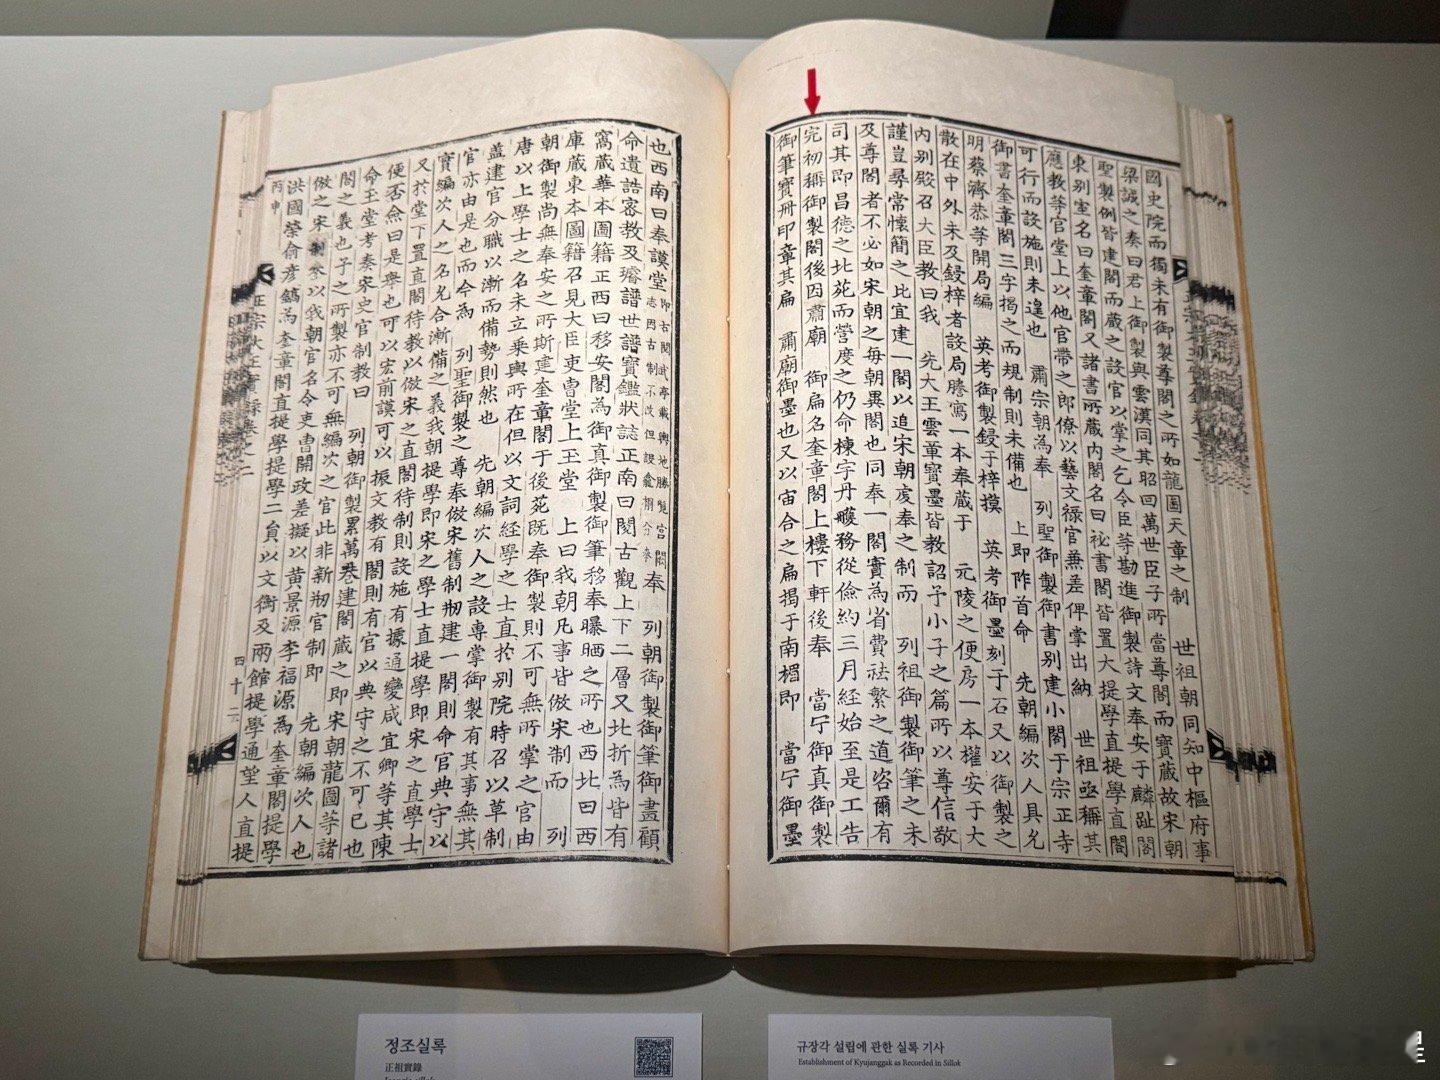 國史院而獨未有御製尊閣之所如龍圖天章之制 世祖朝同知中樞府事
梁誠之奏曰君上御製與雲漢同其昭回萬世臣子所當尊閣而寶藏故宋朝
聖製例皆建閣而藏之設官以掌之乞令臣等勘進御製詩文奉安于麟趾閣
東別室名曰奎章閣又諸書所藏內閣名曰祕書閣皆置大提學直提學直閣
應教等官堂上以他官帶之郎僚以藝文祿官兼差俾掌出納 世祖亟稱其
可行而設施則未遑也 肅宗朝為奉 列聖御製御書別建小閣于宗正寺
御書奎章閣三字揭之而規制則未備也 上即阼首命 先朝編次人具允
明蔡濟恭等開局編 英考御製鋟于梓摸 英考御墨刻于石又以御製之
散在中外未及鋟梓者設局謄寫一本奉藏于 元陵之便房一本權安于大
內別殿召大臣教曰我 先大王雲章寶墨皆教詔予小子之篇所以尊信敬
謹豈尋常懷簡之比宜建一閣以追宋朝虔奉之制而 列祖御製御筆之未
及尊閣者不必如宋朝之每朝異閣也同奉一閣實為省費祛繁之道咨爾有
司其即昌德之北苑而營度之仍命棟宇丹雘務從儉約三月經始至是工告
完初稱御製閣後因肅廟 御扁名奎章閣上樓下軒後奉 當宁御真御製
御筆寶冊印章其扁 肅廟御墨也又以宙合之扁揭于南楣即 當宁御墨
也西南曰奉謨堂 即古閱武亭載輿地勝覽宮闕志因古制不改但設龕榻分㝎 奉 列朝御製御筆御畫顧
命遺誥密教及璿譜世譜寶鑑狀誌正南曰閱古觀上下二層又北折為皆有
窩藏華本圖籍正西曰移安閣為御真御製御筆移奉曝晒之所也西北曰西
庫藏東本圖籍召見大臣吏曹堂上玉堂 上曰我朝凡事皆倣宋制而 列
朝御製尚無奉安之所斯建奎章閣于後苑既奉御製則不可無所掌之官由
唐以上學士之名未立乘輿所在但以文詞經學之士直於別院時召以草制
盖建官分職以漸而備勢則然也 先朝編次人之設專掌御製有其事無其
官亦由是也而今為 列聖御製之尊奉倣宋舊制刱建一閣則命官典守以
實編次人之名允合漸備之義我朝提學即宋之學士直提學即宋之直學士
又於堂下置直閣待教以倣宋之直閣待制則設施有據通變咸宜卿等其陳
便否僉曰是舉也可以宏前謨可以振文教有閣則有官以典守之不可已也
命玉堂考奏宋史官制教曰 列朝御製累萬卷建閣藏之即宋朝龍圖等諸
閣之義也予之所製亦不可無編次之官此非新刱官制即 先朝編次人也
倣之宋制參以我朝官名令吏曹開政差擬以黃景源李福源為奎章閣提學
洪國榮俞彥鎬為奎章閣直提學提學二員以文衡及兩館提學通望人直提
丙申
正宗大王實錄卷之二
四十二
정조실록
正祖實錄
Jeongjo sillok
규장각 설립에 관한 실록 기사
Establishment of Kyujanggak as Recorded in Sillok